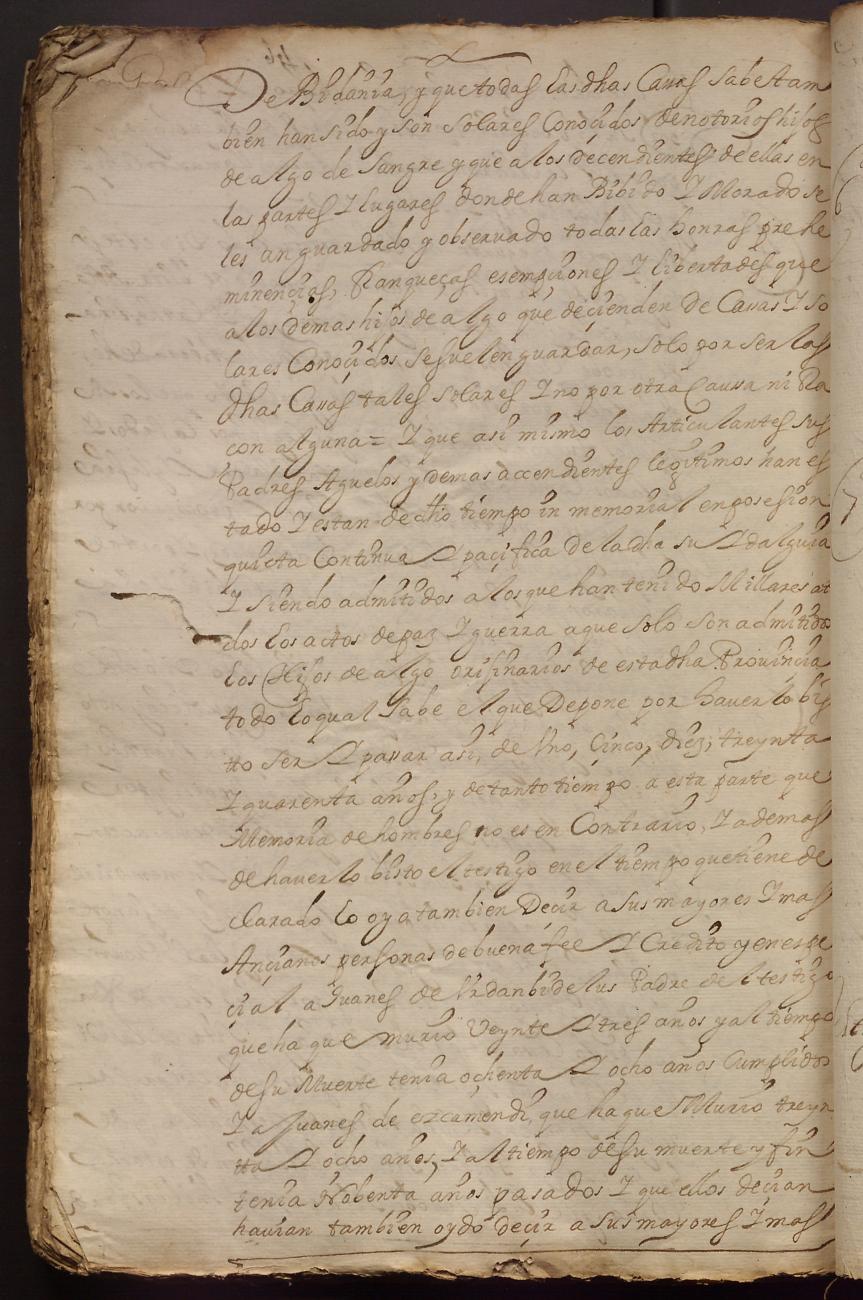 De Bidania, y que todas las dhas Cassas sabe tam
bien han sido y son solares Conoçidos de notorios hijos
de algo de sangre y que a los decendientes de ellas en
las partes I lugares donde han Bibido I Morado se
les an guardado y observado todas las honras prehe
minençias, franqueças esempçiones I libertades que
a los demas hijos de algo que deçienden de Cassas I so
lares Conoçidos se suelen guardar, solo por ser las
dhas Cassas tales solares I no por otra Caussa ni Ra
con alguna = I que asi mismo los Articulantes sus
Padres Aguelos y demas accendientes legitimos han es
tado I estan de dho tiempo in memorial en posesion
quieta Continua I paçifica de la dha su Idalguia
I siendo admitidos a los que han tenido Millares a to
dos los actos de paz I guerra a que solo son admitidos
los Hijos de algo orijinarios de esta dha Provinçia
todo lo qual sabe el que Depone por haverlo bis
tto ser I passar asi, de Uno, Çinco, diez, treynta
I quarenta años, y de tanto tiempo a esta parte que
Memoria de hombres no es en Contrario, I ademas
de haverlo bisto el testigo en el tiempo que tiene de
clarado lo oya tambien Deçir a sus mayores I mas
Ançianos personas de buena fee I Credito y en espe
çial a Juanes de Urdanbidelus Padre del testigo
que ha que murio Veynte I tres años y al tiempo
de su Muerte tenia ochenta I ocho años Cumplidos
I a Juanes de ezcamendi, que ha que Murio treyn
tta I ocho años, I al tiempo de su muerte y fin
tenia Nobenta años pasados I que ellos deçian
havian tambien oydo deçir a sus mayores I mas